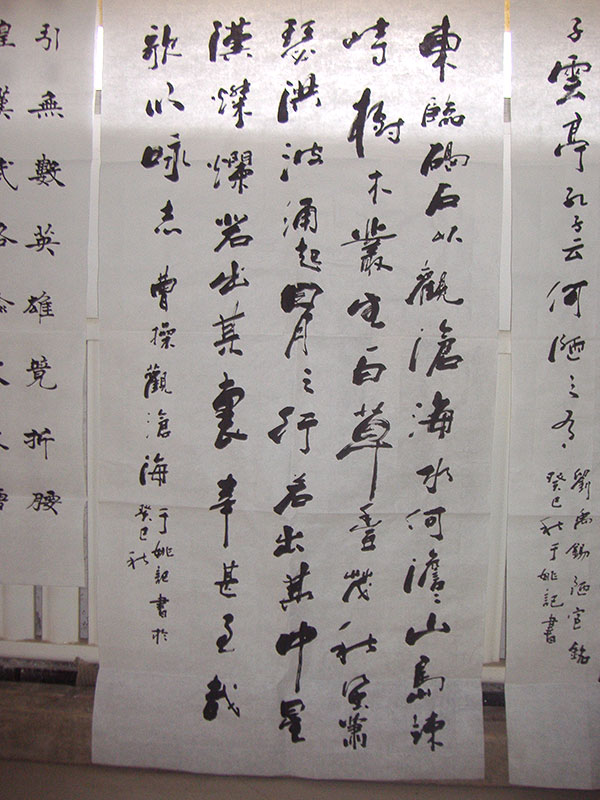 子雲亭孔子云何陋之有
劉禹錫陋室銘
癸巳秋于姚記書
東臨碣石以觀滄海水何澹〻山島竦
峙樹木叢生百草豐茂秋風蕭
瑟洪波涌起日月之行若出其中星
漢燦爛若出其裏幸甚至哉
歌以咏志 曹操觀滄海 于姚記書於
癸巳秋
引無數英雄競折腰